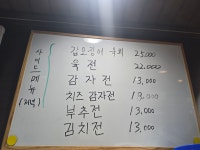 사이드메뉴
(저녁)
갑오징어 숙회 25,000
육전 22,000
감자전 13,000
치즈 감자전 13,000
부추전 13,000
김치전 13,000